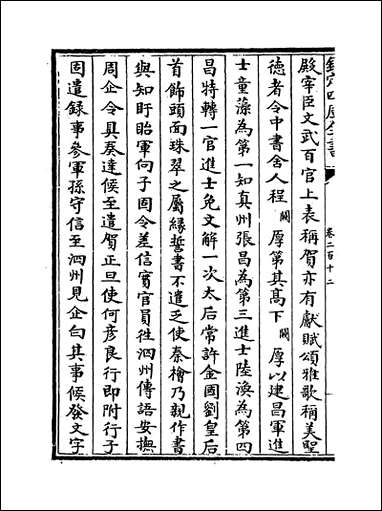 欽定四庫全書
卷二百十二
殿宰臣文武百官上表稱賀亦有獻賦頌雅歌稱美聖
德者令中書舍人程闕厚第其髙下闕厚以建昌軍進
士童藻為第一知真州張昌為第三進士陸渙為第四
昌特轉一官進士免文解一次太后常許金國劉皇后
首飾頭面珠翠之屬縁誓書不遣乏使秦檜乃親作書
與知盱眙軍向子固令差信實官員徃泗州傳語安撫
周企令具奏達候至遣賀正旦使何彦良行即附行子
固遣録事參軍孫守信至泗州見企白其事候發文字